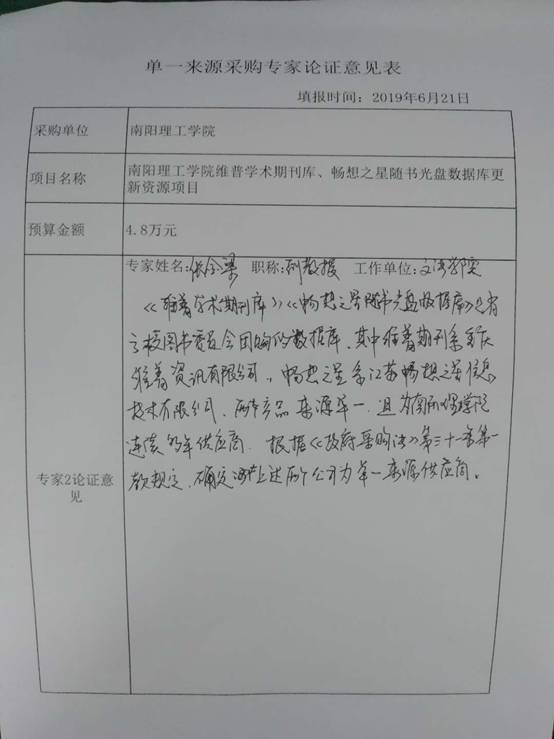 单一来源采购专家论证意见表
填报时间：2019年6月21日
采购单位
南阳理工学院
项目名称
南阳理工学院维普学术期刊库、畅想之星随书光盘数据库更
新资源项目
预算金额
4.8万元
专家姓名: 职称:副教授 工作单位:文法学院
《维普学术期刊库》《畅想之星随书光盘数据库》是省
高校图书委员会团购的数据库，其中维普期刊系重庆
维普资讯有限公司，畅想之星系江苏畅想之星信息
技术有限公司，两产品来源单一，且为南阳理工学院
连续多年供应商，根据《政府采购法》第三十一条第一
款规定，确定上述两个公司为单一来源供应商。
专家2论证意
见